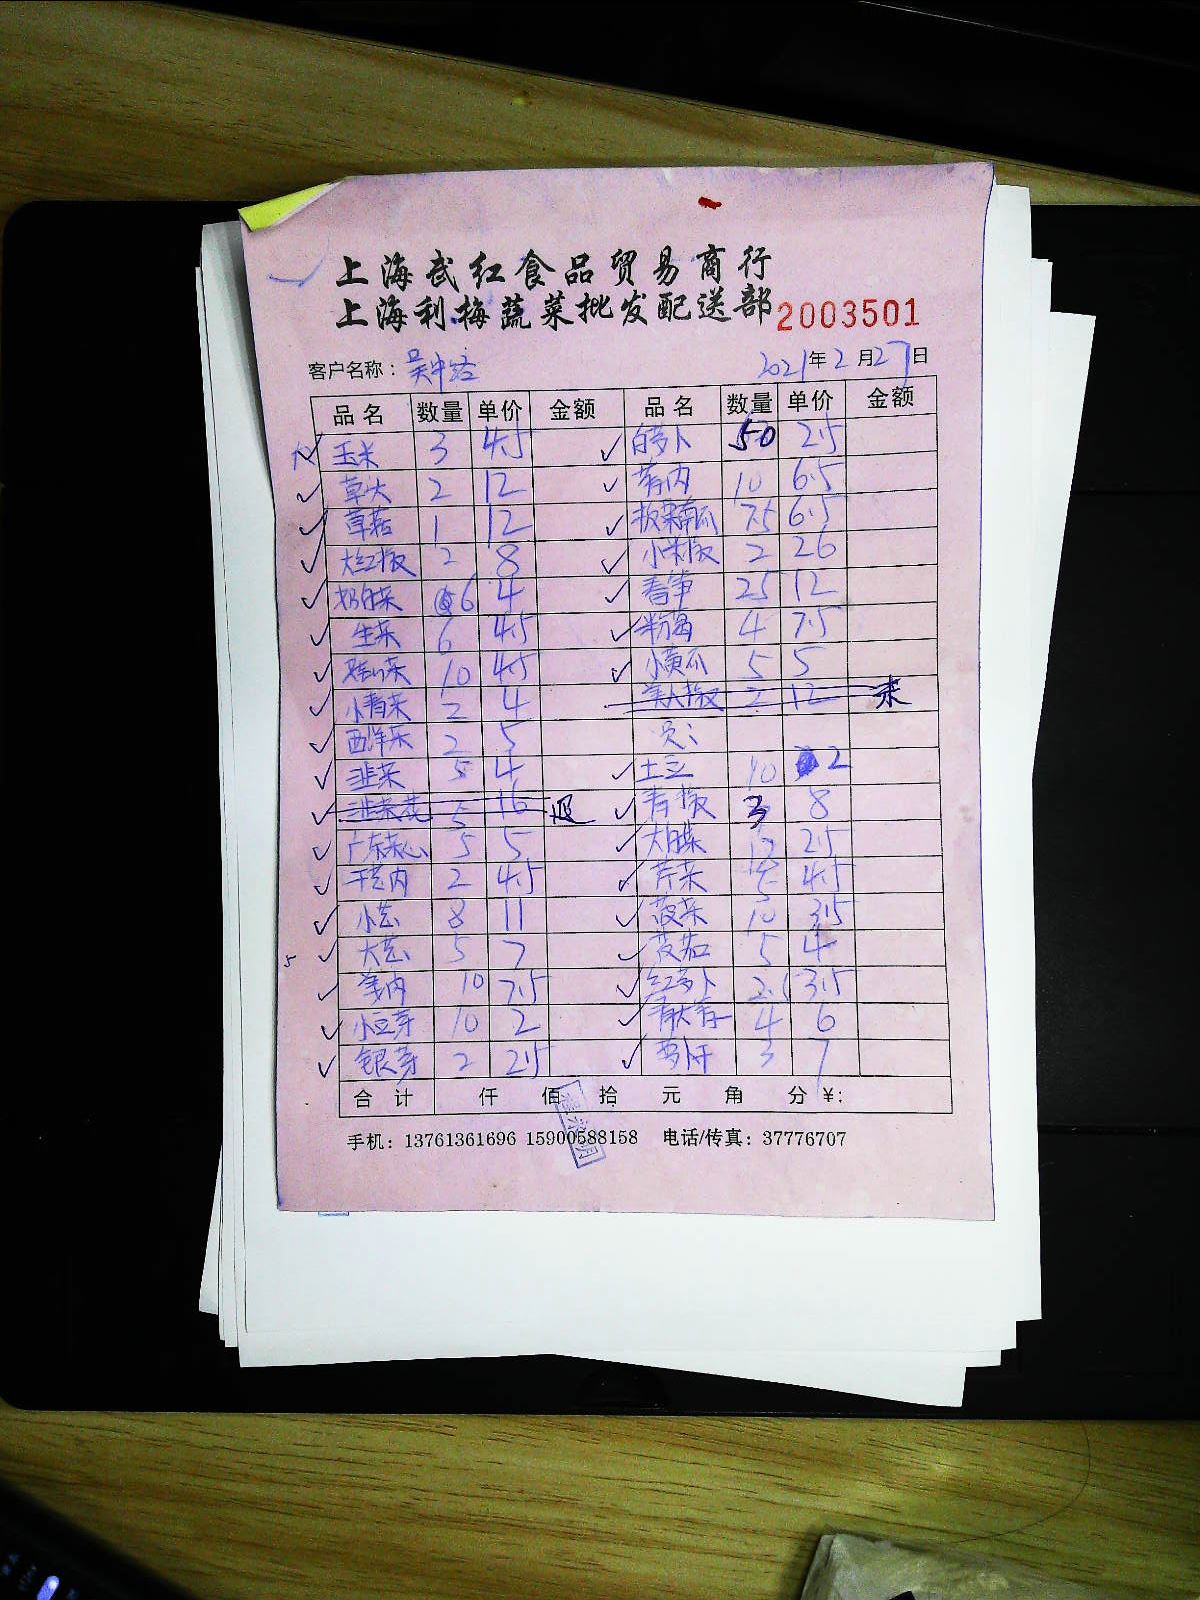 上海武红食品贸易商行
上海利梅蔬菜批发配送部 2003501
客户名称：吴中路 2021年2月27日
品名 数量 单价 金额 品名 数量 单价 金额
玉米 3 4.5 白萝卜 50 2.5
草头 2 12 10 6.5
草菇 1 12 板栗南瓜 7.5 6.5
大红椒 2 8 小米椒 2 26
奶白菜 6 4 春笋 25 12
生菜 6 4.5 4 7.5
10 4.5 小黄瓜 5 5
小青菜 2 4 美人椒 2 12 未
西洋菜 2 5
韭菜 5 4 土豆 10 2
韭菜花 5 16 退 青椒 3 8
广东菜心 5 5 大白菜 2.5
2 4.5 芹菜 4.5
小芸 8 11 菠菜 10 3.5
大芸 5 7 5 4
5
姜肉 10 7.5 红萝卜 2.5 3.5
小豆芽 10 2 4 6
银芽 2 2.5 3 7
合计 仟 佰 拾 元 角 分 ¥：
手机：13761361696 15900588158 电话/传真：37776707